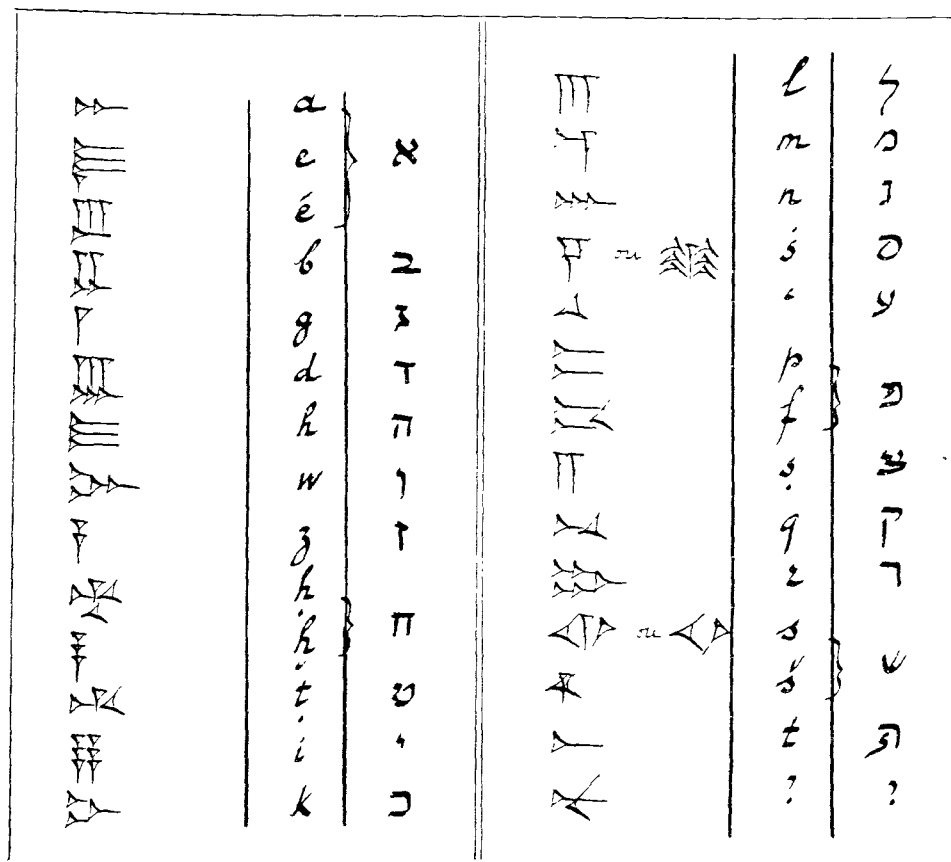 𐎀 a א
𐎛 e
𐎜 é
𐎁 b ב
𐎂 g ג
𐎄 d ד
𐎅 h ה
𐎆 w ו
𐎇 z ז
𐎈 ḥ ח
𐎃 ḫ
𐎉 ṭ ט
𐎊 i י
𐎋 k כ
𐎍 l ל
𐎎 m מ
𐎐 n נ
𐎒 ou 𐎝 ś ס
𐎓 ʿ ע
𐎔 p פ
𐎑 f
𐎕 ṣ צ
𐎖 q ק
𐎗 r ר
𐎌 ou s ש
𐎘 š
𐎚 t ת
𐎙 ? ?